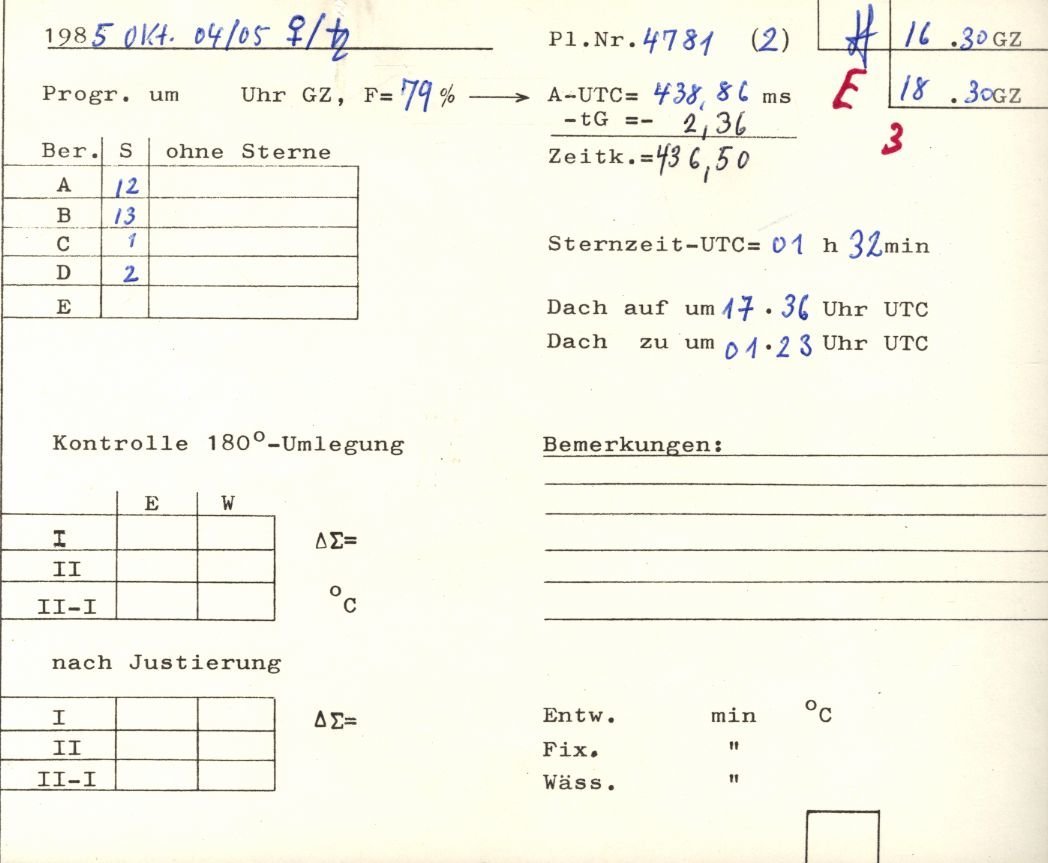 1985 Okt. 04/05 ♀/♄
Pl.Nr. 4781 (2)
16 .30 GZ
Progr. um Uhr GZ, F= 79 % → A-UTC= 438,86 ms
E 18 .30 GZ
-tG =- 2,36
3
Zeitk.= 436,50
Ber. S ohne Sterne
A 12
B 13
C 1
D 2
E
Sternzeit-UTC= 01 h 32 min
Dach auf um 17 . 36 Uhr UTC
Dach zu um 01 . 23 Uhr UTC
Kontrolle 180°-Umlegung
Bemerkungen:
E W
I ΔΣ=
II
II-I °C
nach Justierung
I ΔΣ=
II
II-I
Entw. min °C
Fix. "
Wäss. "